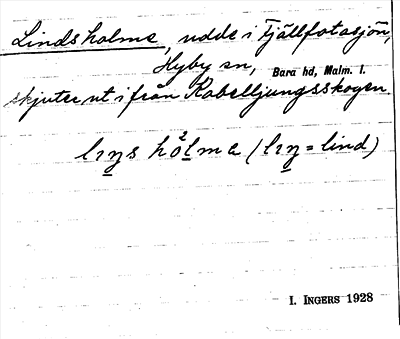 Lindsholme, udde i Fjällfotasjön,
Hyby sn, Bara hd, Malm. l.
skjuter ut ifrån Kabelljungsskogen
lɪŋs hòlma (lɪŋ = lind)
I. INGERS 1928